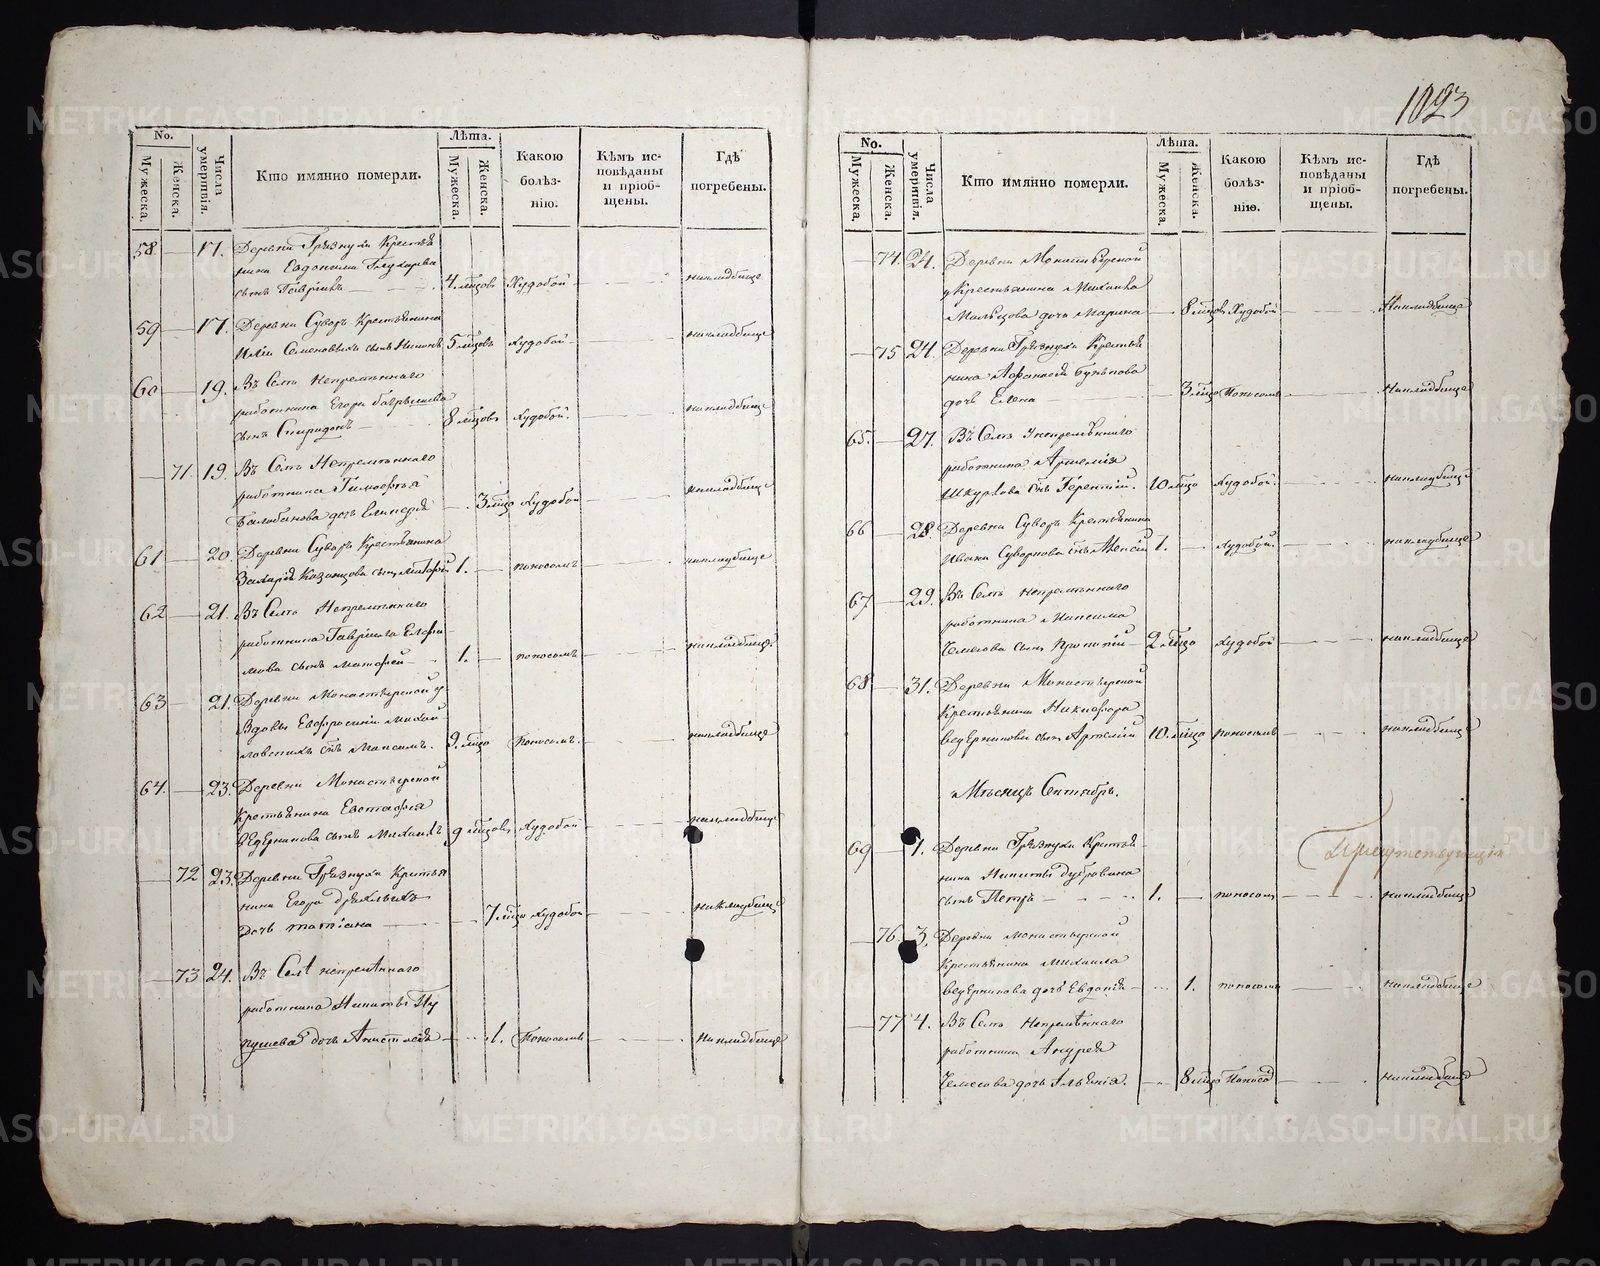 1023
No.
Мужеска.
Женска.
Числа умертвія.
Кто имянно померли.
Лѣта.
Мужеска.
Женска.
Какою болѣз-
нію.
Кѣмъ ис-
повѣданы
и пріоб-
щены.
Гдѣ
погребены.
58 — 17. Деревни Грязнухи Крестья
нина Евдокима Глухарева
сынъ Гавріилъ 4. мѣсцовъ Худобой на кладбище
59 — 17. Деревни Суворъ Крестьянина
Иліи Семеновыхъ сынъ 5 мѣсцовъ худобой на кладбище
60 — 19. Въ Селѣ Непремѣннаго
работника Егора
сынъ Спиридонъ 8 мѣсцовъ худобой. на кладбище
— 71. 19. Въ Селѣ Непремѣннаго
работника Тимофея
Балобанова дочь Гликерія 3 мѣсцо худобой на кладбище
61 — 20. Деревни Суворъ Крестьянина
Захарія Казанцова сынъ Матфѣй 1. — поносомъ на кладбище
62 — 21. Въ Селѣ Непремѣннаго
работника Гавріила Ефи
мова сынъ Матфей 1. — поносомъ на кладбище
63 — 21. Деревни Монастырской у
Вдовы Евфросиніи Михай
ловскихъ сынъ Максимъ. 9. мѣсцо Поносомъ. на кладбище
64. — 23. Деревни Монастырской
Крестьянина Евстафія
Ведерникова сынъ Михаилъ 9 мѣсцовъ худобой на кладбище
— 72 23. Деревни Грязнухи Крестья
нина Егора Дряхлыхъ
дочь Татіана 7 мѣсцо худобой на кладбище
— 73 24. Въ Селѣ непремѣннаго
работника Никиты Пу
пышева дочь Анастасія 1. Поносомъ на кладбище
No.
Мужеска.
Женска.
Числа умертвія.
Кто имянно померли.
Лѣта.
Мужеска.
Женска.
Какою
болѣз-
нію.
Кѣмъ ис-
повѣданы
и пріоб-
щены.
Гдѣ
погребены.
— 74. 24. Деревни Монастырской
у Крестьянина Михаила
Мальцова дочь Марина 8 мѣсцовъ Худобой На кладбище
— 75 24. Деревни Грязнухи Крестья
нина Афанасія
дочь Елена 3. мѣсцо Поносомъ На кладбище
65. — 27. Въ Селѣ Непремѣннаго
работника Артемія
Шкурхова сынъ Терентій. 10 мѣсцо худобой. на кладбище
66 — 28. Деревни Суворъ Крестьянина
Ивана Суворкова сынъ Алексій 1. — худобой. на кладбище
67 — 29. Въ Селѣ непремѣннаго
работника Максима
Чемесова сынъ Прокопій 2 мѣсцо худобой на кладбище
68 — 31. Деревни Монастырской
Крестьянина Никифора
Ведерникова сынъ Артемій 10. мѣсцо поносомъ на кладбище
Мѣсяцъ Сентябрь.
69 — 1. Деревни Грязнухи Крестья
нина Никиты Дубровина
сынъ Петръ 1. — поносомъ на кладбище
Присутствующій
— 76. 3. Деревни Монастырской
Крестьянина Михаила
Ведерникова дочь Евдокія 1. поносомъ на кладбище
— 77 4. Въ Селѣ Непремѣннаго
работника Андрея
Чемесова дочь 8 мѣсцо Поносо на кладбище
METRIKI.GASO-URAL.RU